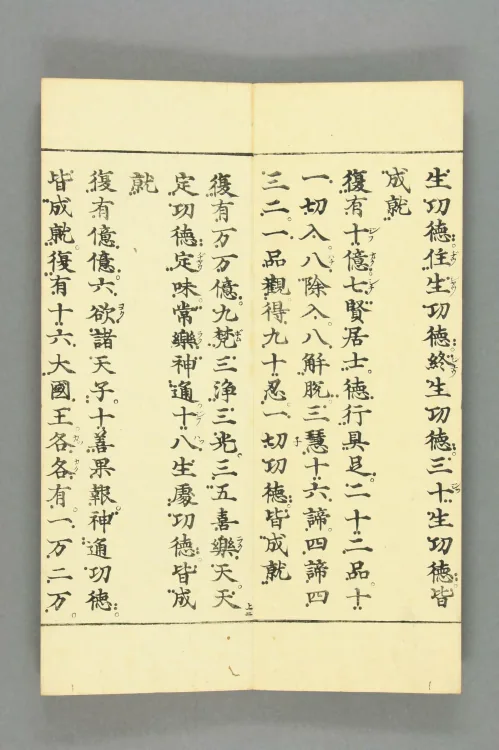 生功徳住生功徳終生功徳三十生功徳皆
成就
復有十億七賢居士徳行具足二十二品十
一切入八除入八解脱三慧十六諦四諦四
三二一品觀得九十忍一切功徳皆成就
復有万万億九梵三浄三光三五喜樂天天
定功徳定味常樂神通十八生處功徳皆成
就
復有億億六欲諸天子十善果報神通功徳
皆成就復有十六大國王各各有一万二万